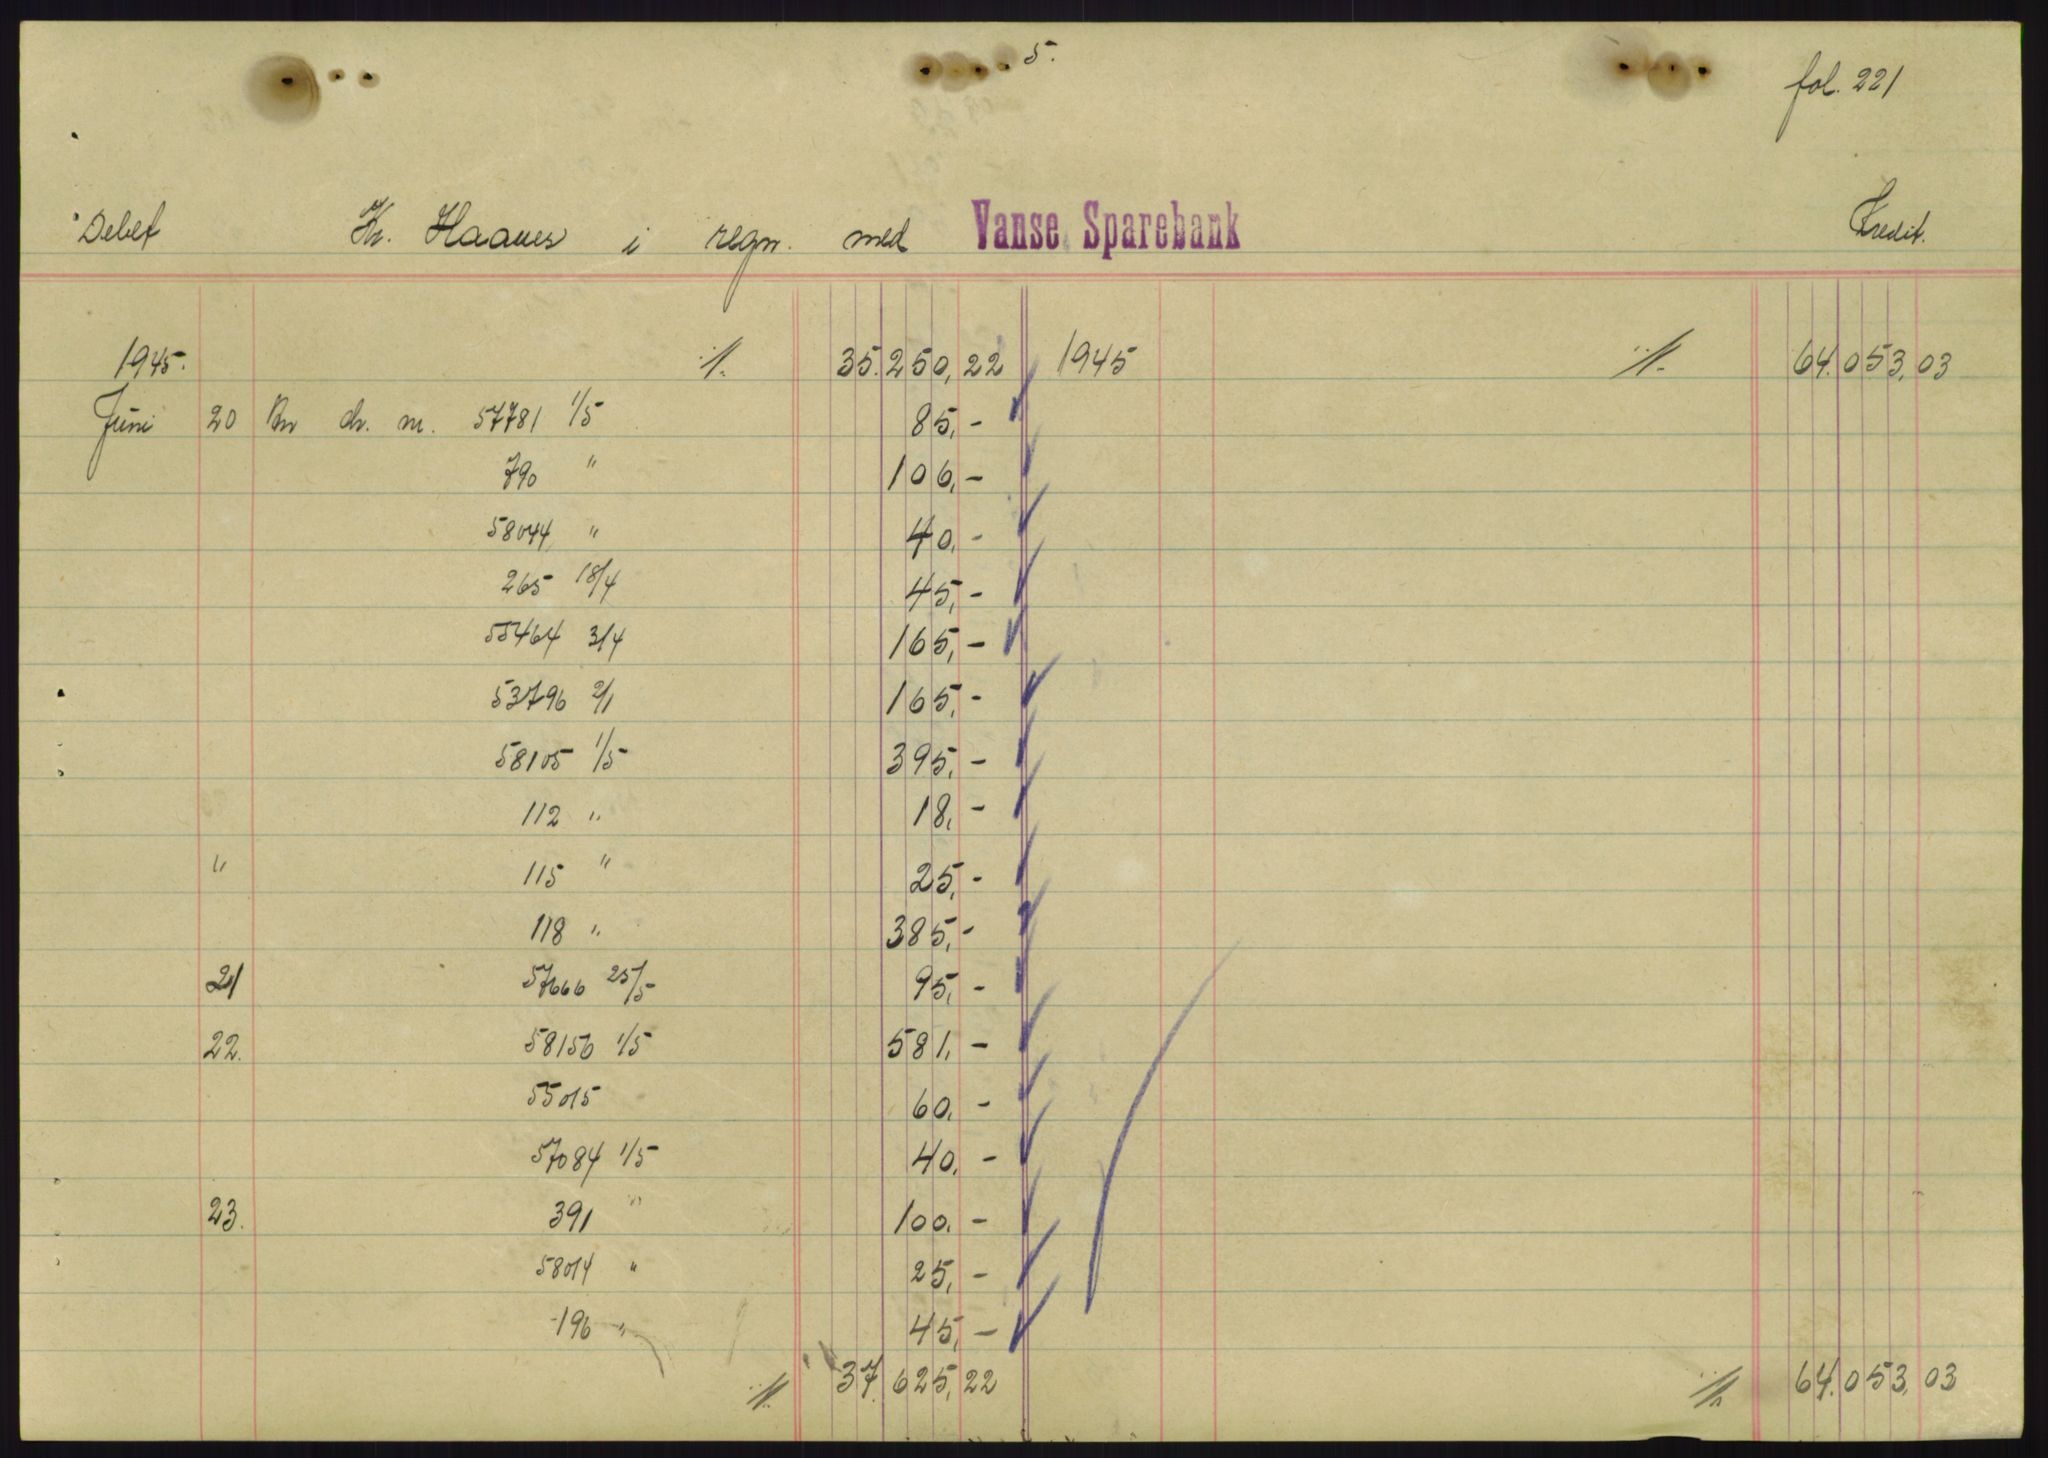 5.
fol. 221
Debet Kr. Haanes i regn. med Vanse Sparebank Kredit.
1945. 35.250,22 1945 64.053,03
Juni 20 ch. nr. 57781 1/5 85,-
790 " 106,-
58044 " 40,-
265 18/4 45,-
55464 3/4 165,-
53796 2/1 165,-
58105 1/5 395,-
112 " 18,-
" 115 " 25,-
118 " 385,-
21 57666 25/5 95,-
22. 58156 1/5 581,-
55015 60,-
57084 1/5 40,-
23. 391 " 100,-
58014 " 25,-
196 " 45,-
37.625,22 64.053,03